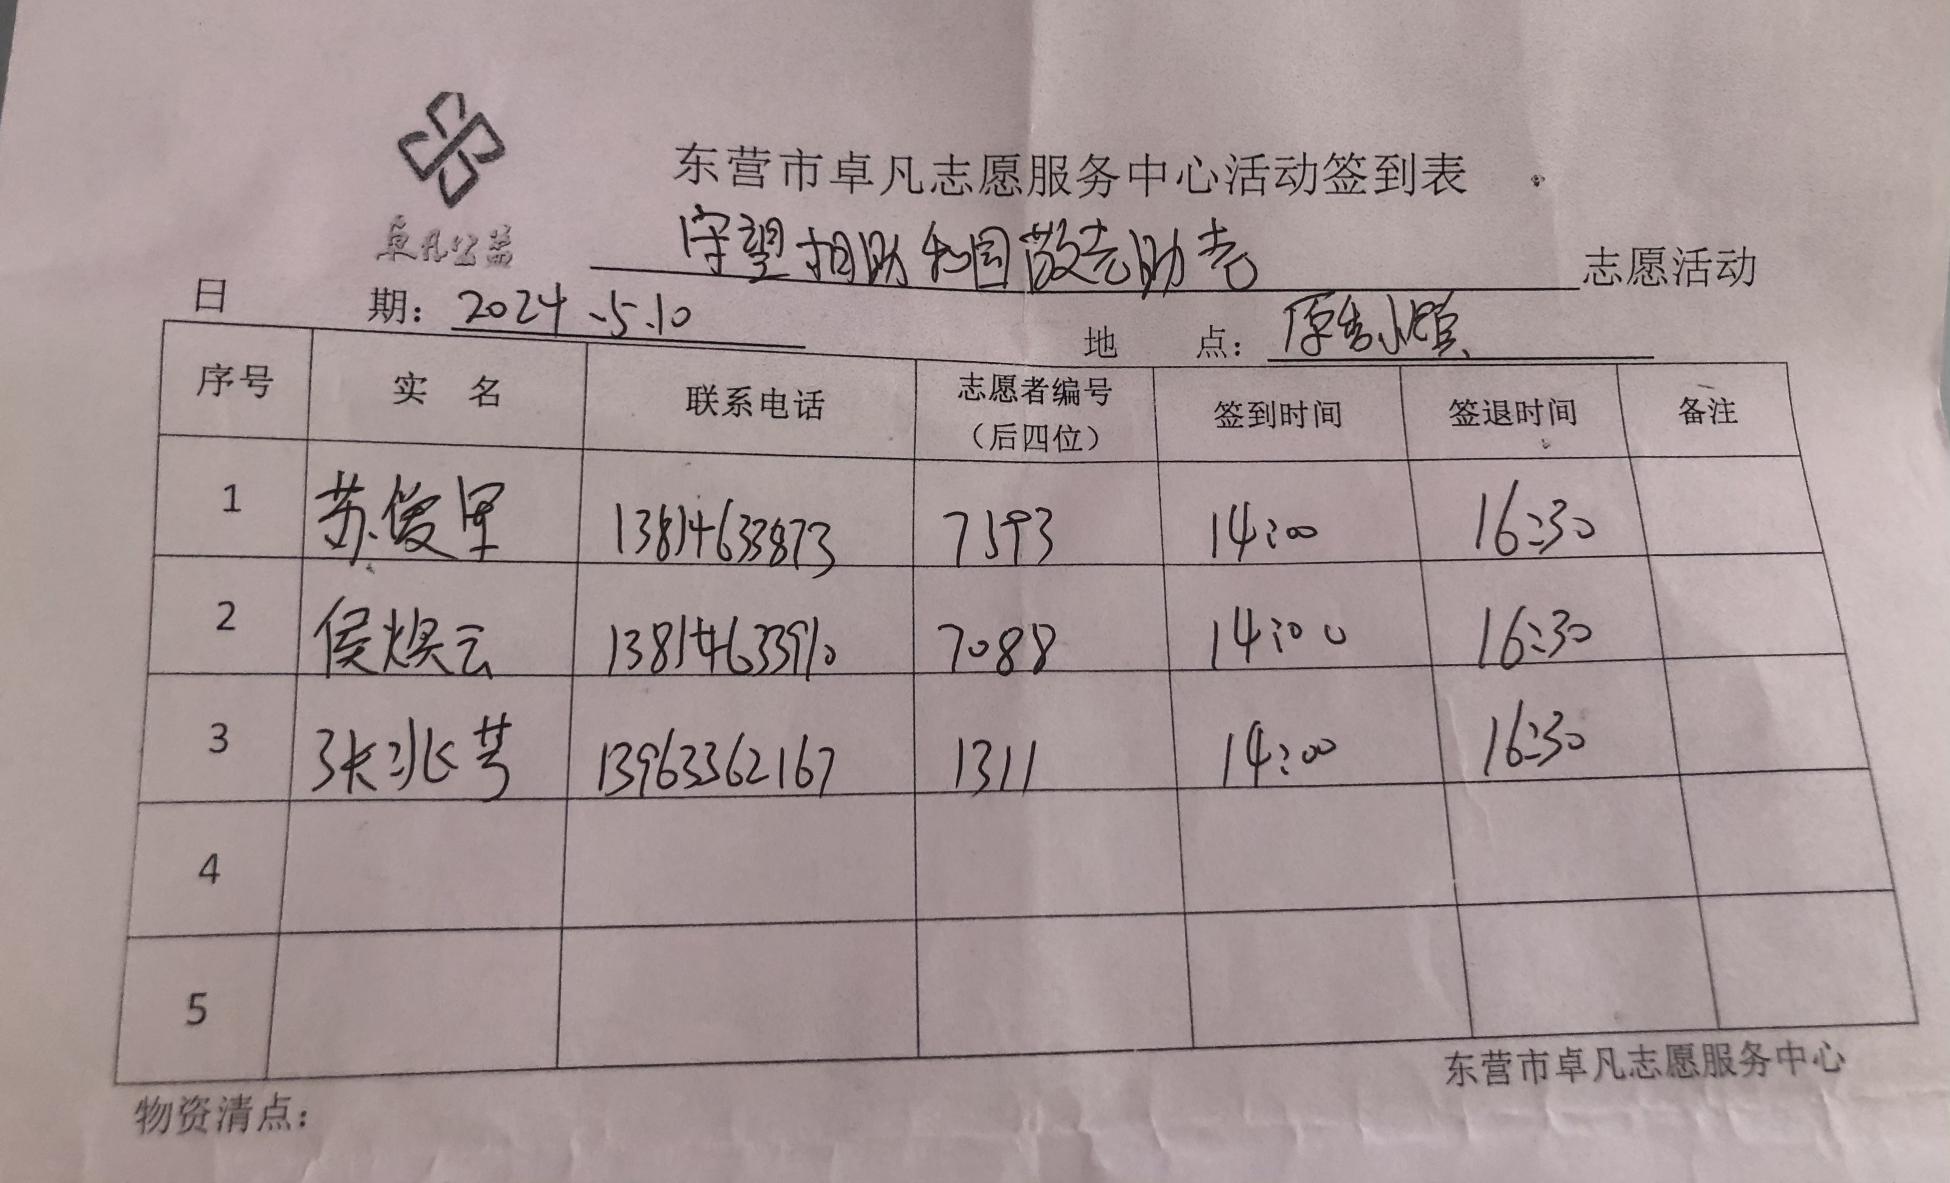 东营市卓凡志愿服务中心活动签到表
卓凡公益
守望相助和园敬老助老 志愿活动
日 期: 2024.5.10 地 点:
序号 实 名 联系电话 志愿者编号(后四位) 签到时间 签退时间 备注
1 苏俊里 13814633873 7593 14:00 16:30
2 侯焕云 13814633910 7088 14:00 16:30
3 张兆芳 13963362167 1311 14:00 16:30
4
5
东营市卓凡志愿服务中心
物资清点: